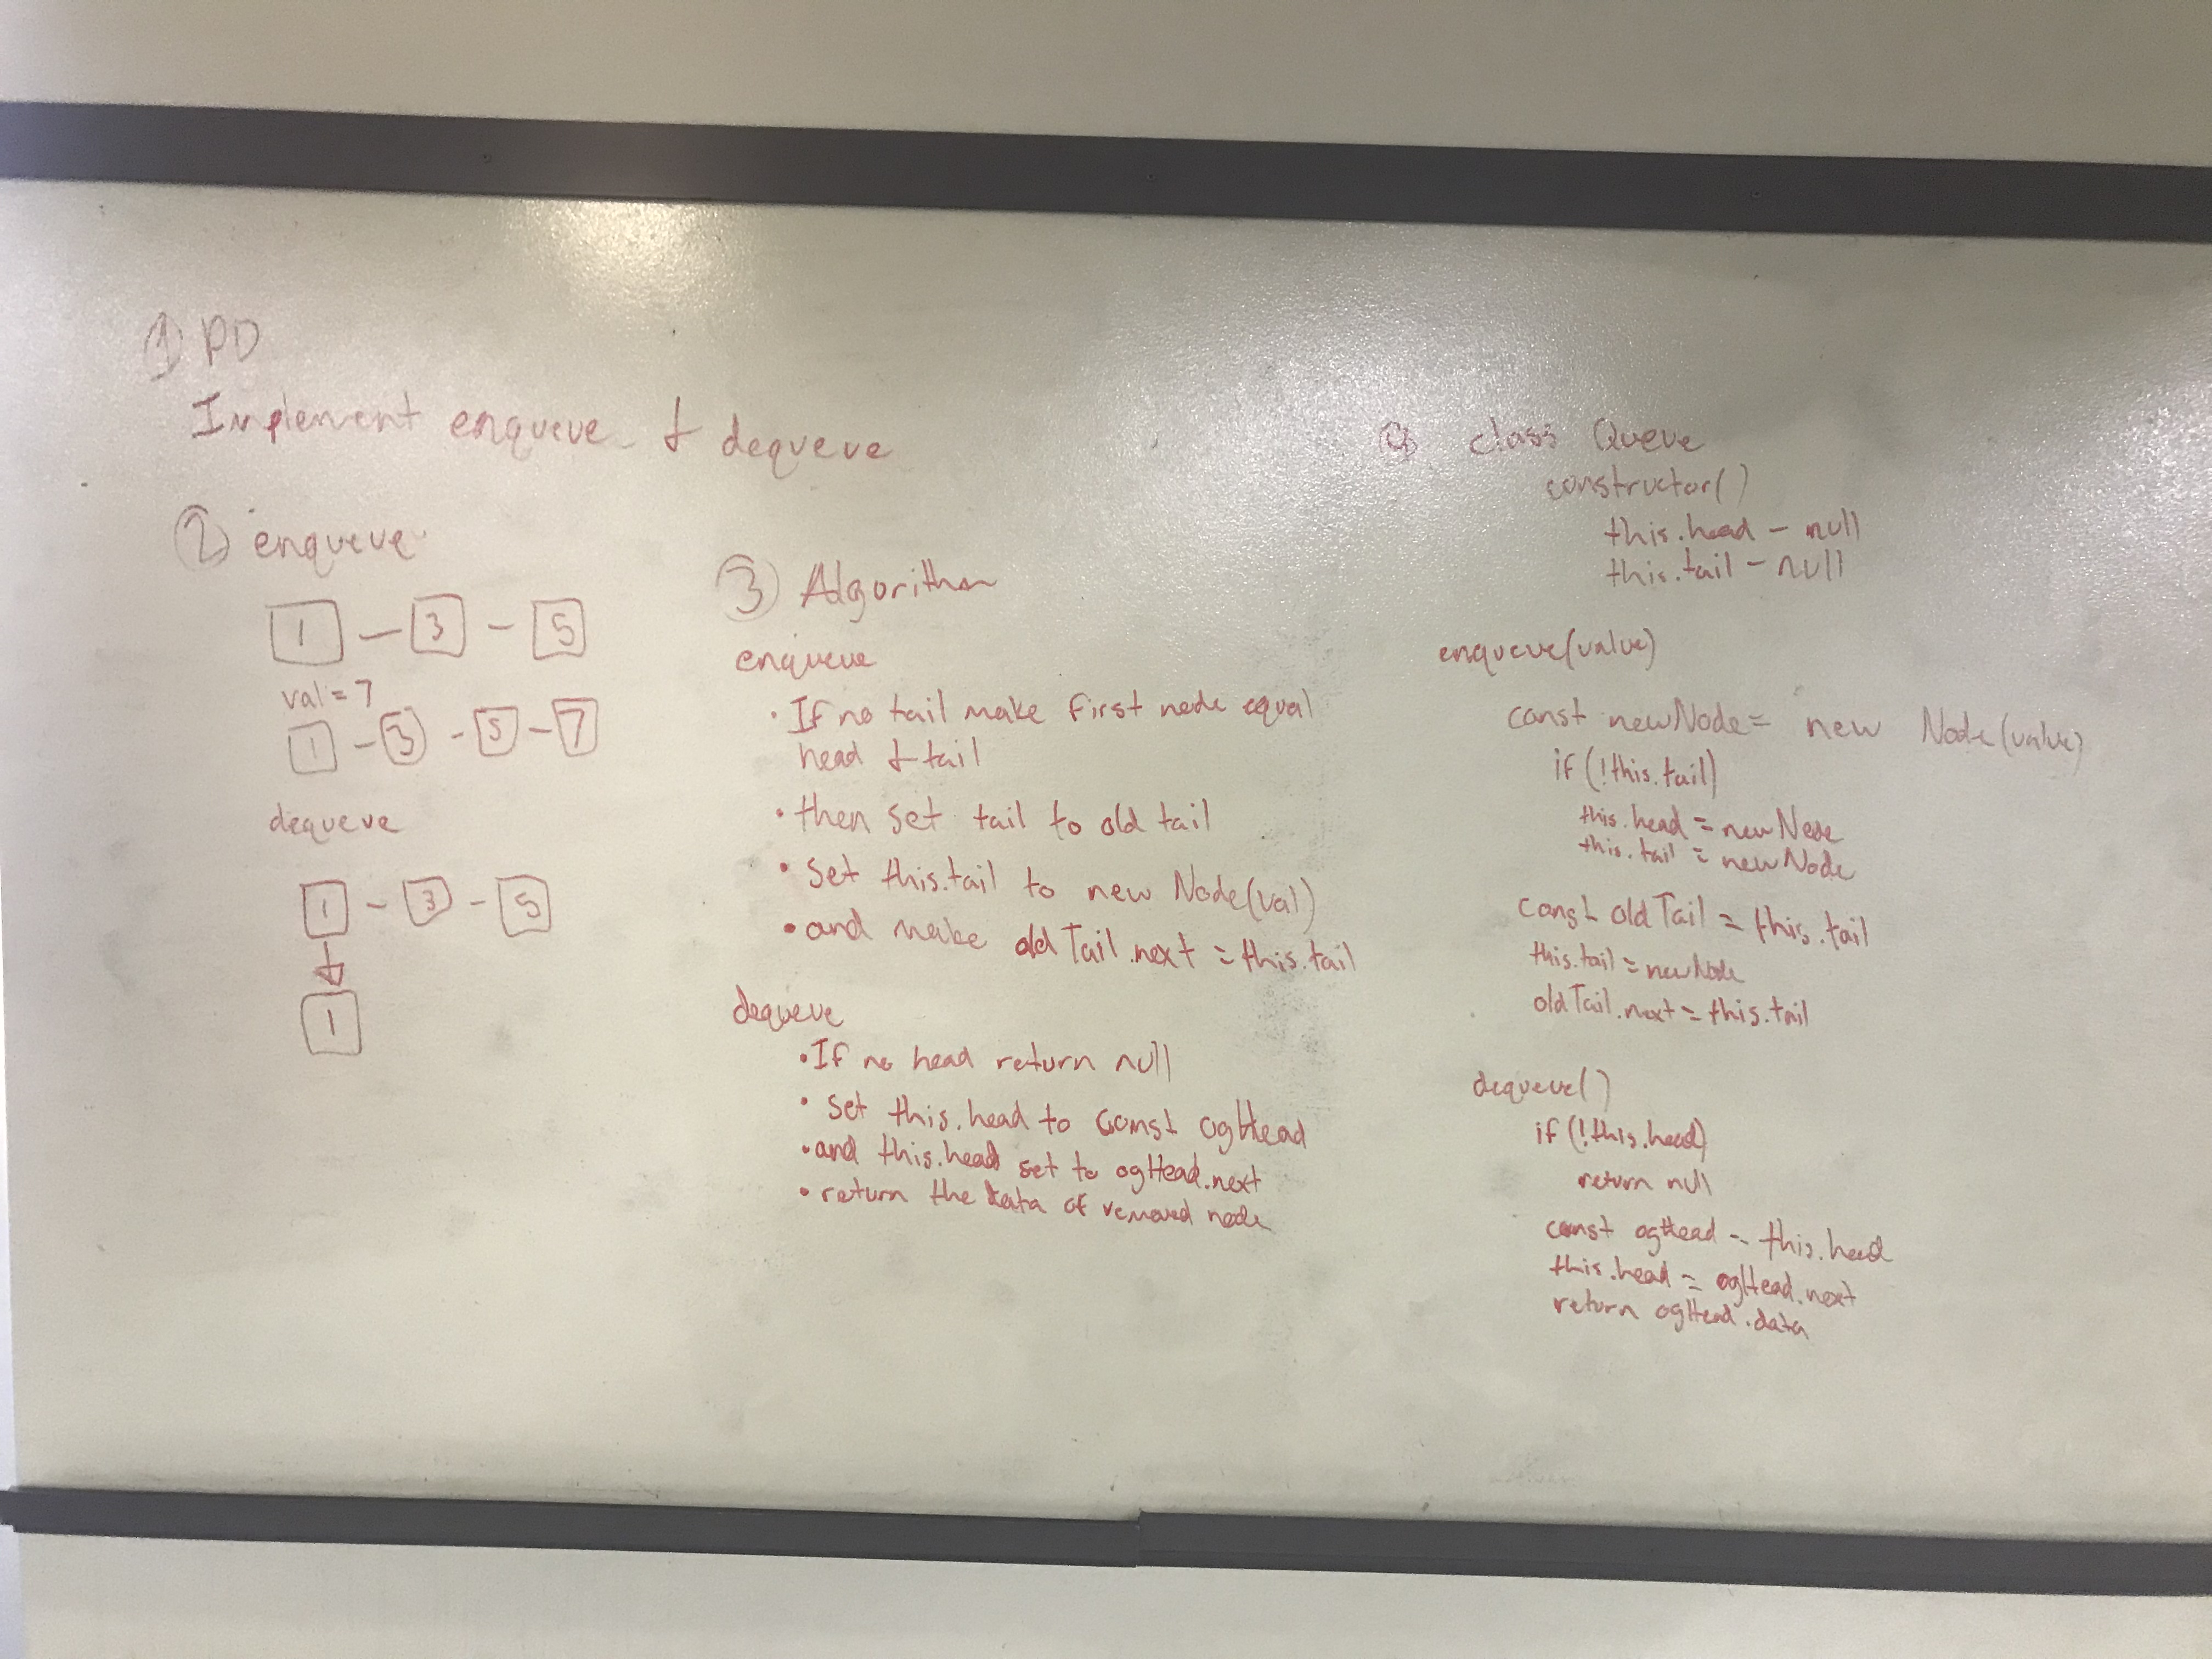 ① PD
Implement enqueue & dequeue
② enqueue
1 - 3 - 5
val = 7
1 - 3 - 5 - 7
dequeue
1 - 3 - 5
1
③ Algorithm
enqueue
• If no tail make first node equal
head & tail
• then set tail to old tail
• set this.tail to new Node(val)
• and make oldTail.next = this.tail
dequeue
• If no head return null
• set this.head to const ogHead
• and this.head set to ogHead.next
• return the data of removed node
④ class Queue
constructor()
this.head - null
this.tail - null
enqueue(value)
const newNode = new Node(value)
if (!this.tail)
this.head = newNode
this.tail = newNode
const oldTail = this.tail
this.tail = newNode
oldTail.next = this.tail
dequeue()
if (!this.head)
return null
const ogHead = this.head
this.head = ogHead.next
return ogHead.data